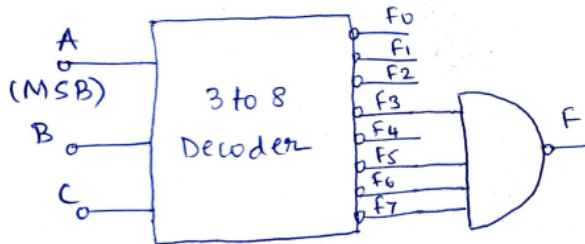 A
(MSB)
B
C
3 to 8
Decoder
F0
F1
F2
F3
F4
F5
F6
F7
F